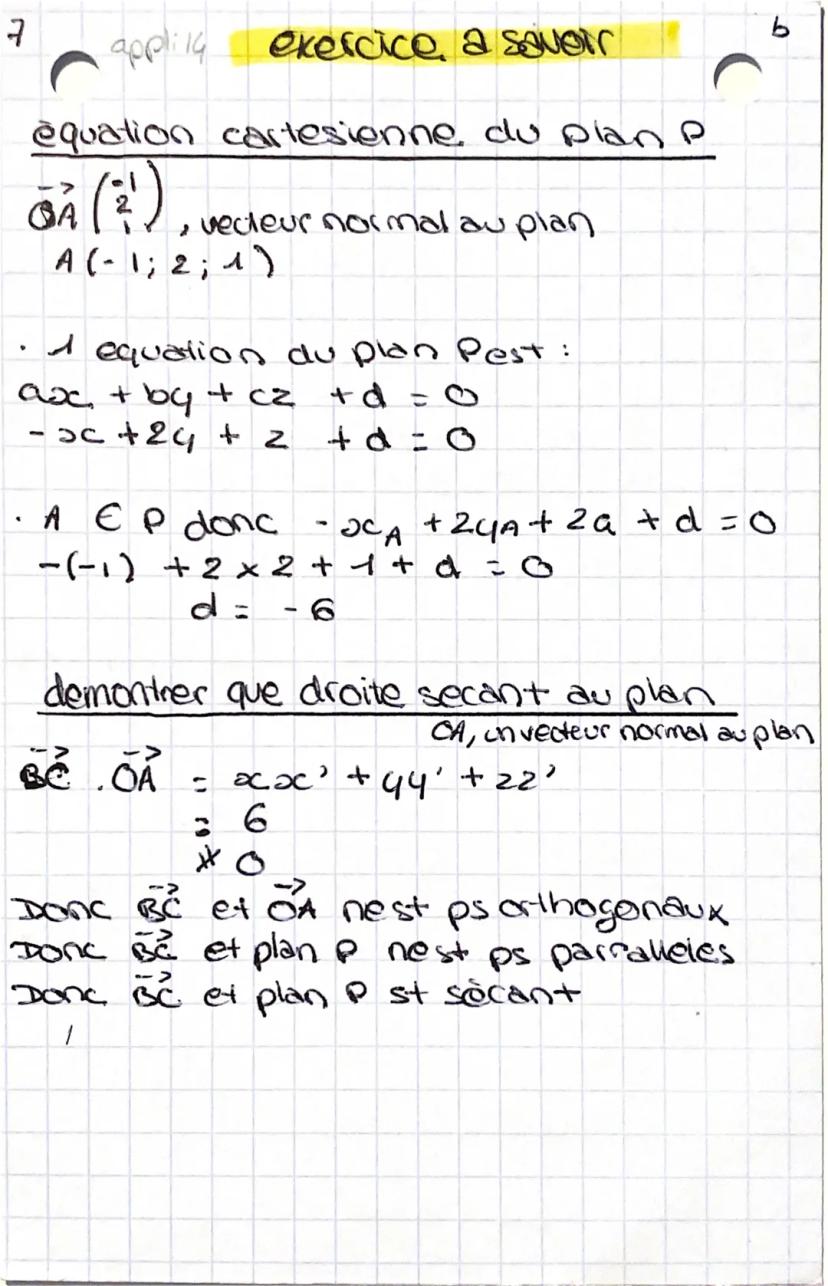 7
appli 14
exercice a savoir
b
èquation cartesienne du plan P
OA→ (-1 2 1), vecteur normal au plan
A(-1; 2; 1)
· 1 equation du plan P est :
ax + by + cz + d = 0
-x + 2y + z + d = 0
· A ∈ P donc -xA + 2yA + za + d = 0
-(-1) + 2 x 2 + 1 + d = 0
d = -6
demontrer que droite secant au plan
OA, un vecteur normal au plan
BC→ . OA→ = xx' + yy' + zz'
= 6
≠ 0
Donc BC→ et OA→ nest ps orthogonaux
Donc BC→ et plan P nest ps parralleles
Donc BC→ et plan P st sècant